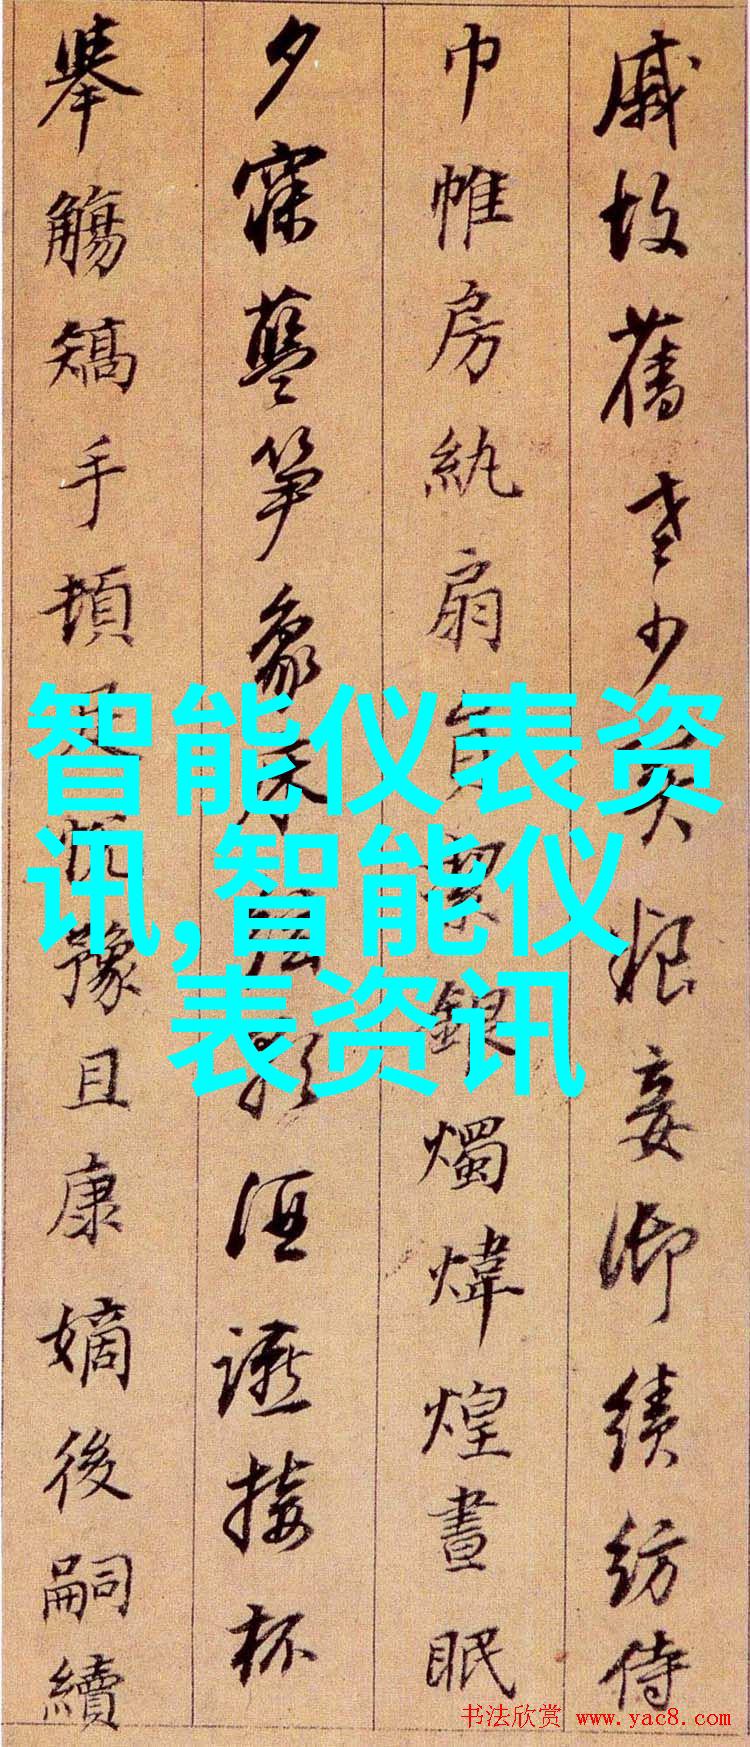 戚故舊老少異粮妾御績紡侍
巾帷房紈扇員潔銀燭煒煌晝眠
夕寐藍笋象床弦歌酒讌接杯
舉觴矯手頓足悅豫且康嫡後嗣續
智能仪表资
讯,智能仪
表资讯
书法欣赏 www.yac8.com